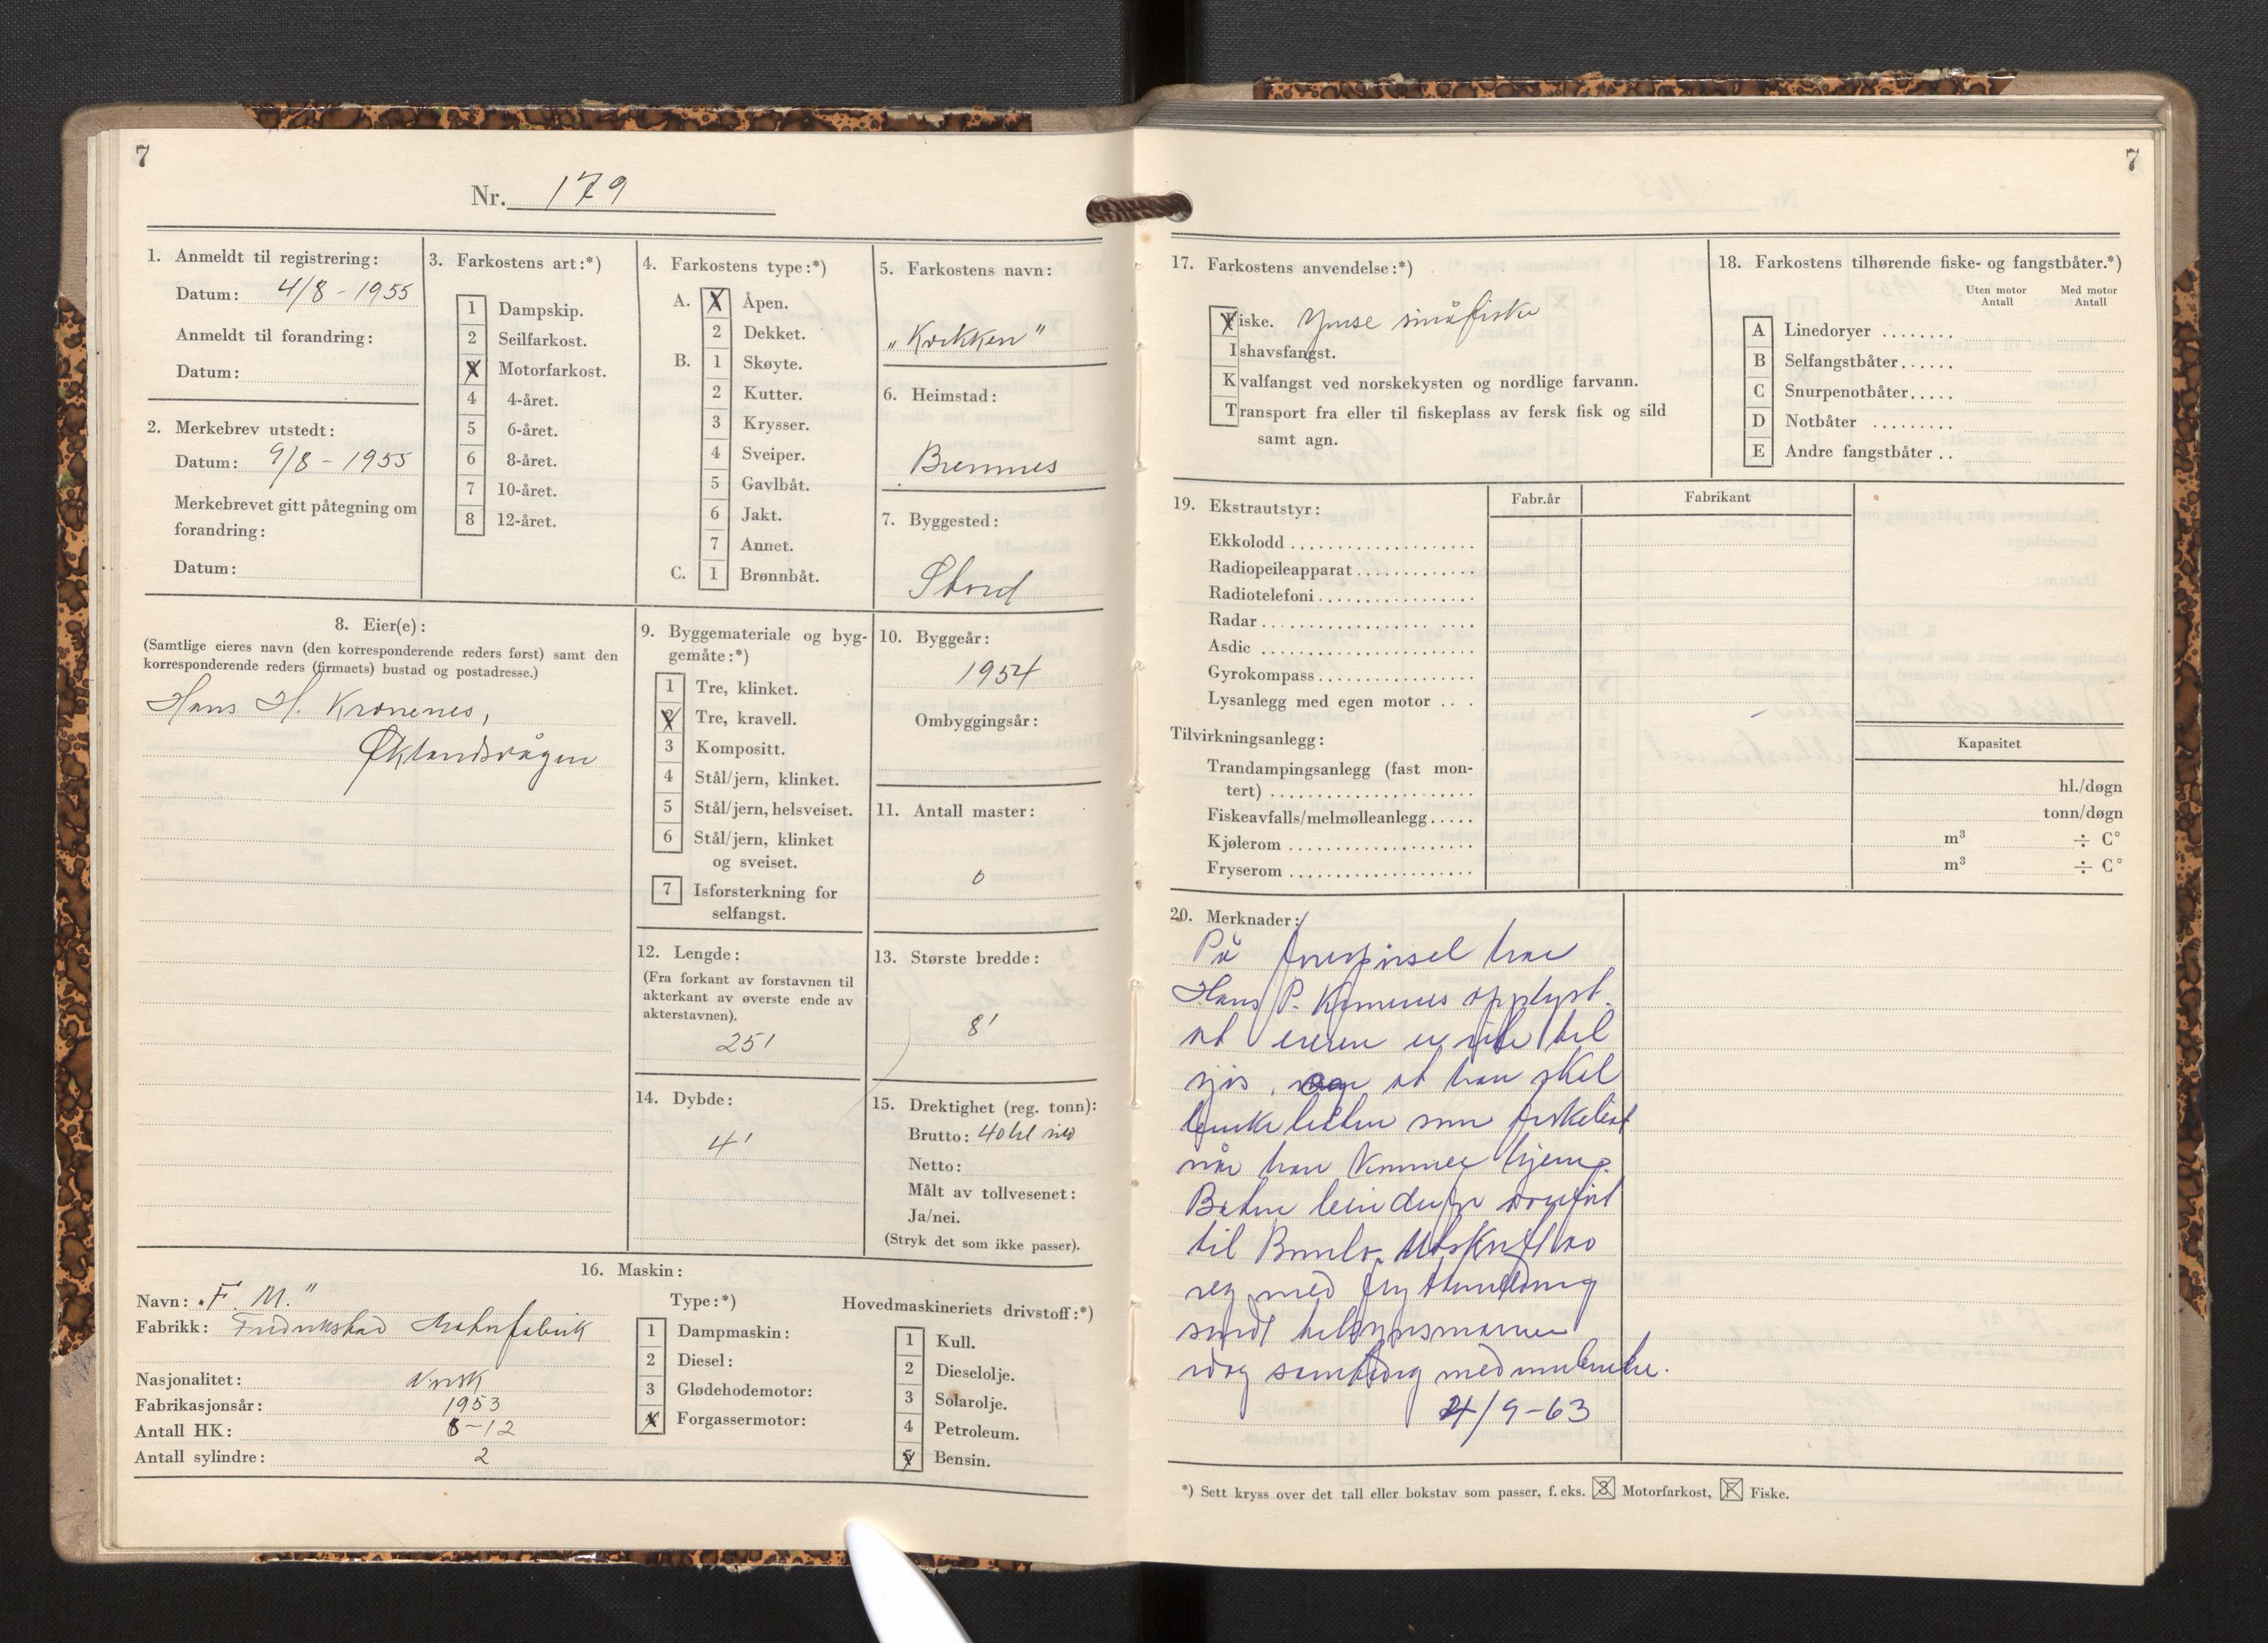 7
Nr. 179
1. Anmeldt til registrering:
Datum: 4/8-1955
Anmeldt til forandring:
Datum:
2. Merkebrev utstedt:
Datum: 9/8-1955
Merkebrevet gitt påtegning om
forandring:
Datum:
3. Farkostens art:*)
1 Dampskip.
2 Seilfarkost.
3 Motorfarkost.
4 4-året.
5 6-året.
6 8-året.
7 10-året.
8 12-året.
4. Farkostens type:*)
A. 1 Åpen.
2 Dekket.
B. 1 Skøyte.
2 Kutter.
3 Krysser.
4 Sveiper.
5 Gavlbåt.
6 Jakt.
7 Annet.
C. 1 Brønnbåt.
5. Farkostens navn:
„Kvikken"
6. Heimstad:
Bremnes
7. Byggested:
Stord
8. Eier(e):
(Samtlige eieres navn (den korresponderende reders først) samt den
korresponderende reders (firmaets) bustad og postadresse.)
Hans H. Kronenes,
Øklandsvågen
9. Byggemateriale og byg-
gemåte:*)
1 Tre, klinket.
2 Tre, kravell.
3 Kompositt.
4 Stål/jern, klinket.
5 Stål/jern, helsveiset.
6 Stål/jern, klinket
og sveiset.
7 Isforsterkning for
selfangst.
10. Byggeår:
1954
Ombyggingsår:
11. Antall master:
0
12. Lengde:
(Fra forkant av forstavnen til
akterkant av øverste ende av
akterstavnen).
25'
13. Største bredde:
8'
14. Dybde:
4'
15. Drektighet (reg. tonn):
Brutto: 40 hl sild
Netto:
Målt av tollvesenet:
Ja/nei.
(Stryk det som ikke passer).
16. Maskin:
Navn: „F. M."
Fabrikk: Fredrikstad Motorfabrik
Nasjonalitet: Norsk
Fabrikasjonsår: 1953
Antall HK: 8-12
Antall sylindre: 2
Type:*)
1 Dampmaskin:
2 Diesel:
3 Glødehodemotor:
4 Forgassermotor:
Hovedmaskineriets drivstoff:*)
1 Kull.
2 Dieselolje.
3 Solarolje.
4 Petroleum.
5 Bensin.
7
17. Farkostens anvendelse:*)
Fiske. Ymse småfiske
Ishavsfangst.
Kvalfangst ved norskekysten og nordlige farvann.
Transport fra eller til fiskeplass av fersk fisk og sild
samt agn.
18. Farkostens tilhørende fiske- og fangstbåter.*)
Uten motor Antall Med motor Antall
A Linedoryer ........
B Selfangstbåter......
C Snurpenotbåter.....
D Notbåter .........
E Andre fangstbåter ..
19. Ekstrautstyr:
Fabr.år Fabrikant
Ekkolodd
Radiopeileapparat
Radiotelefoni
Radar
Asdic
Gyrokompass
Lysanlegg med egen motor
Tilvirkningsanlegg:
Kapasitet
Trandampingsanlegg (fast mon-
tert) hl./døgn
Fiskeavfalls/melmølleanlegg..... tonn/døgn
Kjølerom m³ ÷ C°
Fryserom m³ ÷ C°
20. Merknader:
På forespørsel har
Hans P. Kronenes opplyst
at eieren er ute til
sjøs, og at han skal
bruke båten som fiskebåt
når han kommer hjem.
Båten blir derfor overført
til Bømlo. Utskrift av
reg. med flyttemelding
sendt tilsynsmannen
idag
4/9-63
*) Sett kryss over det tall eller bokstav som passer, f. eks. 3 Motorfarkost, F Fiske.